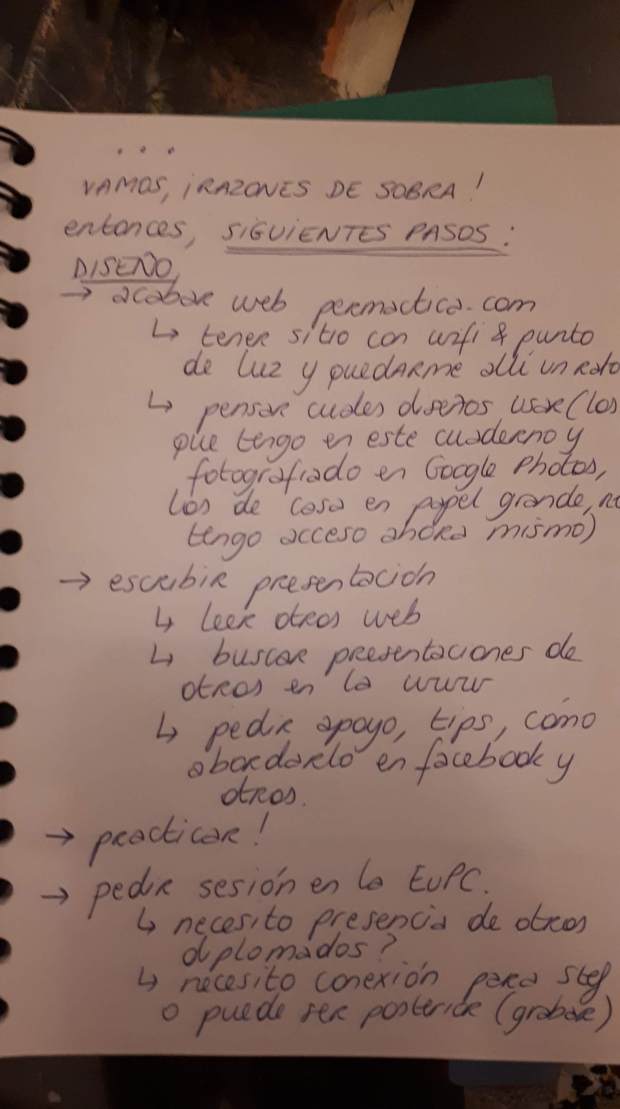 ...
VAMOS, ¡RAZONES DE SOBRA!
entonces, SIGUIENTES PASOS:
DISEÑO
→ acabar web permactica.com
↳ tener sitio con wifi & punto
de luz y quedarme allí un rato
↳ pensar cuales diseños usar (los
que tengo en este cuaderno y
fotografiado en Google Photos,
los de casa en papel grande, no
tengo acceso ahora mismo)
→ escribir presentación
↳ leer otros web
↳ buscar presentaciones de
otros en la www
↳ pedir apoyo, tips, cómo
abordarlo en facebook y
otros.
→ practicar!
→ pedir sesión en la EuPC.
↳ necesito presencia de otros
diplomados?
↳ necesito conexión para Stef
o puede ser posterior (grabar)